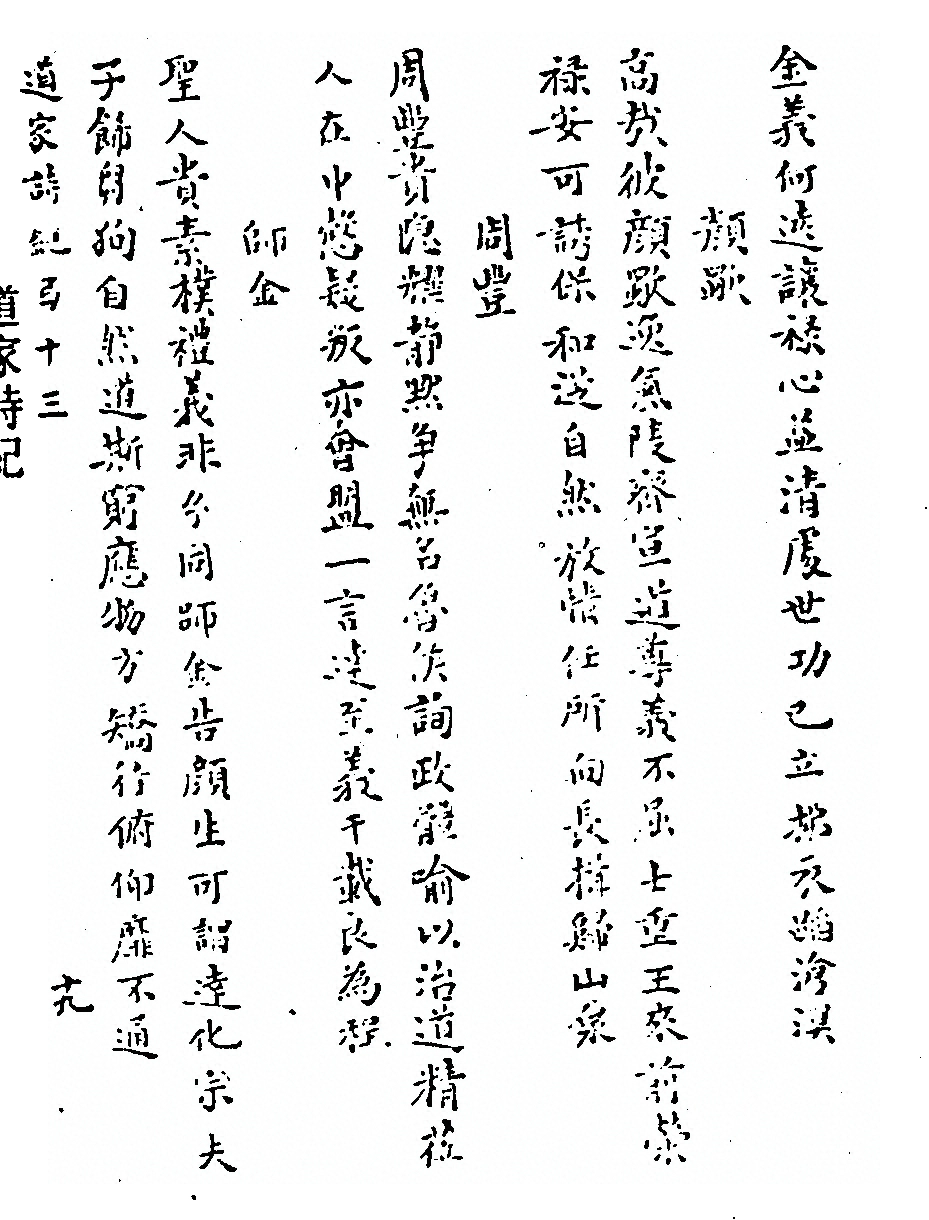 金義何遠讓祿心並清處世功已立拂衣蹈滄溟
顏歜
高哉彼顏歜逸氣陵齊宣道尊義不屈士重王來前榮
祿安可誘保和從自然放情任所向長揖歸山泉
周豐
周豐貴隱耀靜默爭無名魯侯詢政體喻以治道精莅
人在中愨疑叛亦會盟一言達至義千載良為程
師金
聖人貴素樸禮義非今同師金告顏生可謂達化宗夫
子飾芻狗自然道斯窮應物方矯行俯仰靡不通
道家詩紀弓十三
十九
道家詩紀